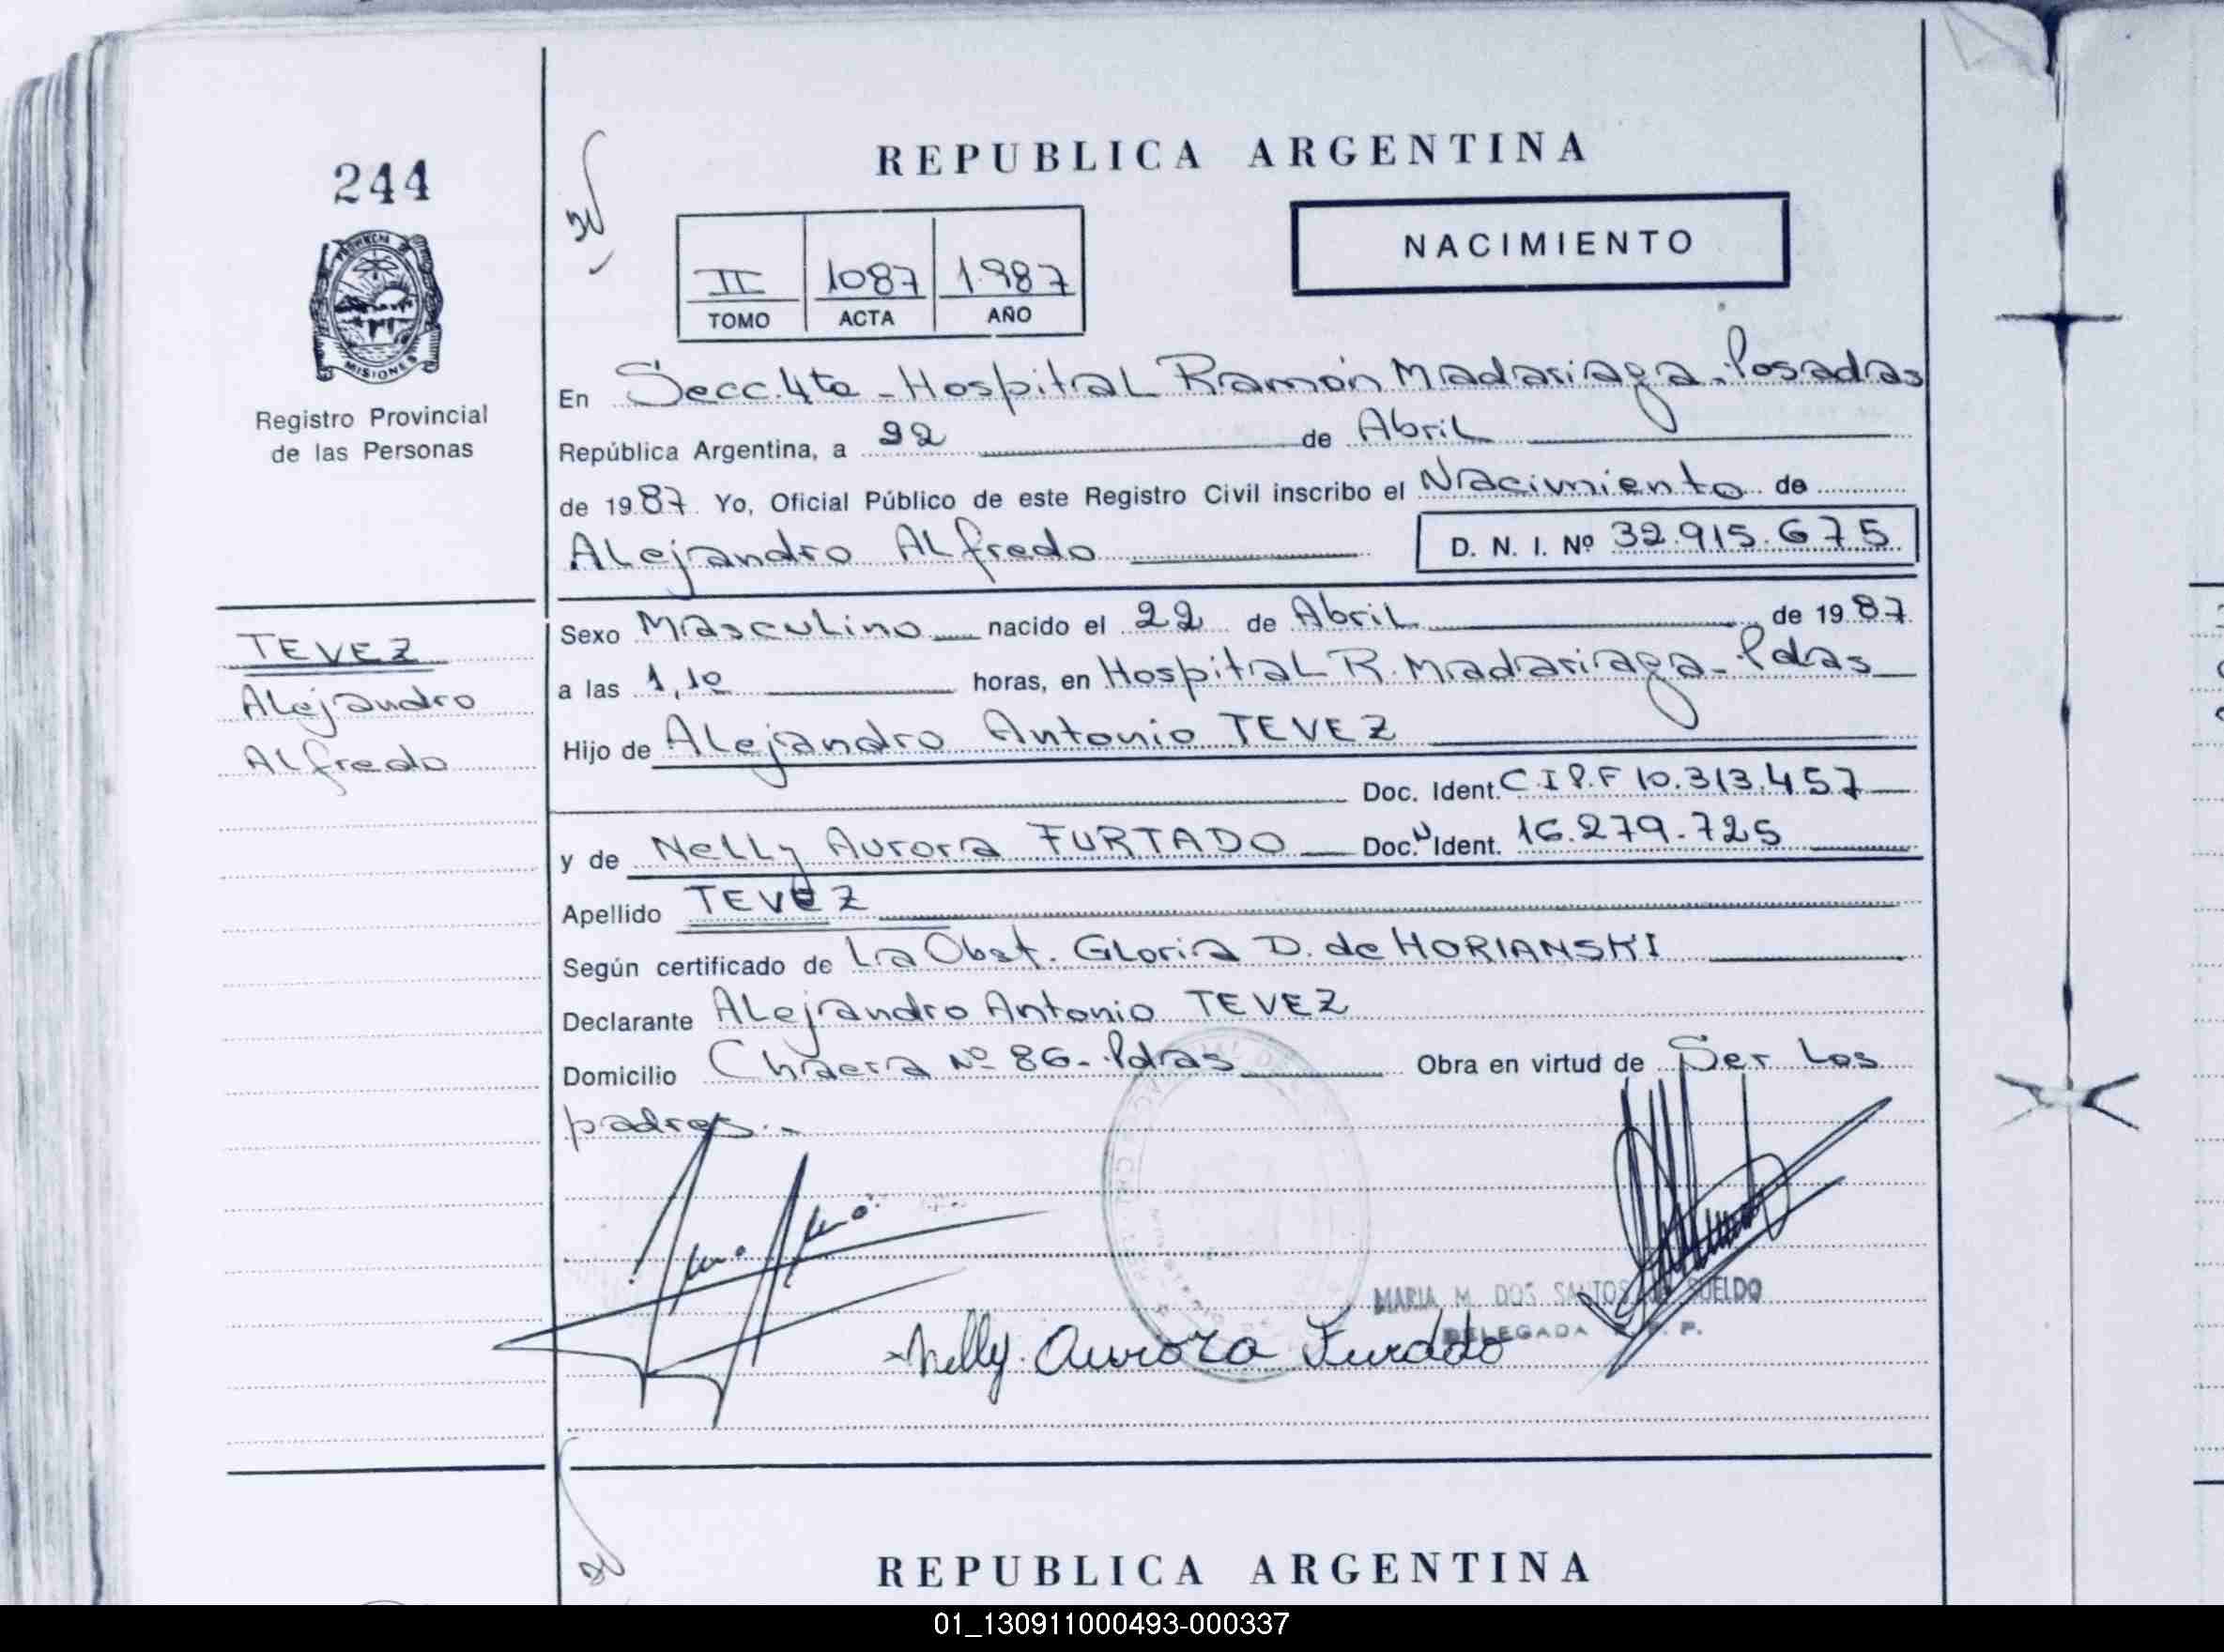 244
PROVINCIA
MISIONES
Registro Provincial
de las Personas
TEVEZ
Alejandro
Alfredo
REPUBLICA ARGENTINA
II 1087 1.987
TOMO ACTA AÑO
NACIMIENTO
En Secc. 4ta - Hospital Ramón Madariaga - Posadas
República Argentina, a 22 de Abril
de 1987. Yo, Oficial Público de este Registro Civil inscribo el Nacimiento de
Alejandro Alfredo D. N. I. Nº 32.915.675
Sexo Masculino nacido el 22 de Abril de 1987.
a las 1,10 horas, en Hospital R. Madariaga - Pdas
Hijo de Alejandro Antonio TEVEZ
Doc. Ident. C.I P.F 10.313.457
y de Nelly Aurora FURTADO Doc. N Ident. 16.279.725
Apellido TEVEZ
Según certificado de La Obst. Gloria D. de HORIANSKI
Declarante Alejandro Antonio TEVEZ
Domicilio Chacra Nº 86 - Pdas Obra en virtud de Ser Los
padres.-
MARIA M. DOS SANTOS SUELDO
DELEGADA P.
Nelly Aurora Furddo
REPUBLICA ARGENTINA
01_130911000493-000337